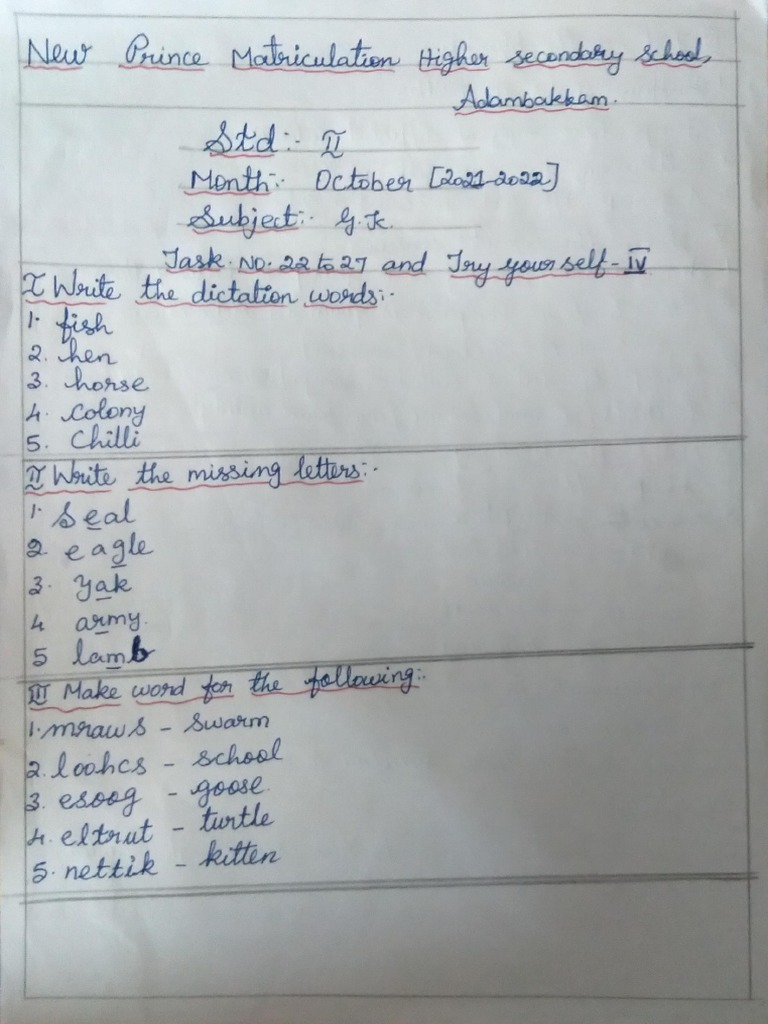 New Prince Matriculation Higher secondary school,
Adambakkam.
Std:- II
Month:- October [2021-2022]
Subject:- G.K.
Task No. 22 to 27 and Try yourself - IV
I Write the dictation words:-
1. fish
2. hen
3. horse
4. colony
5. chilli
II Write the missing letters:-
1. seal
2. eagle
3. yak
4 army.
5 lamb
III Make word for the following:-
1. mraws - swarm
2. loohcs - school
3. esoog - goose.
4. eltrut - turtle
5. nettik - kitten